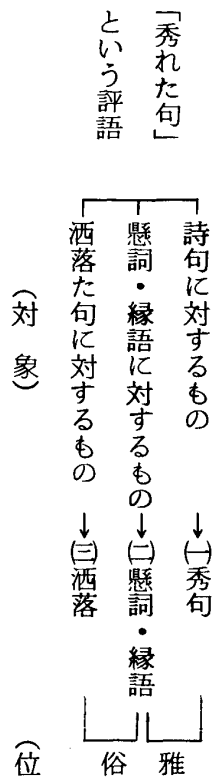 「秀れた句」
という評語
詩句に対するもの→㈠秀句
懸詞・縁語に対するもの→㈡懸詞・縁語
洒落た句に対するもの→㈢洒落
(対象)
雅
俗
(位